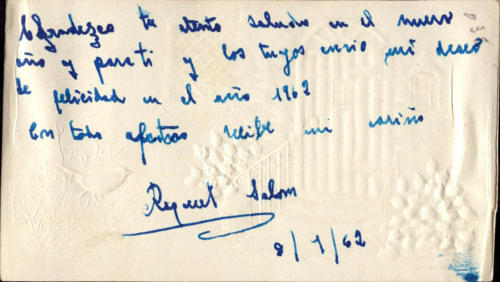 Agradezco tu atento saludo en el nuevo
año y para ti y los tuyos envio mi deseo
de felicidad en el año 1962
Con todo afecto recibe mi cariño
Raquel Salom
8/1/62